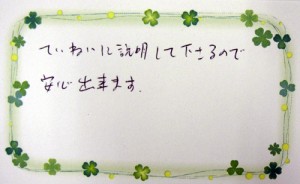 ていねいに説明して下さるので
安心出来ます.